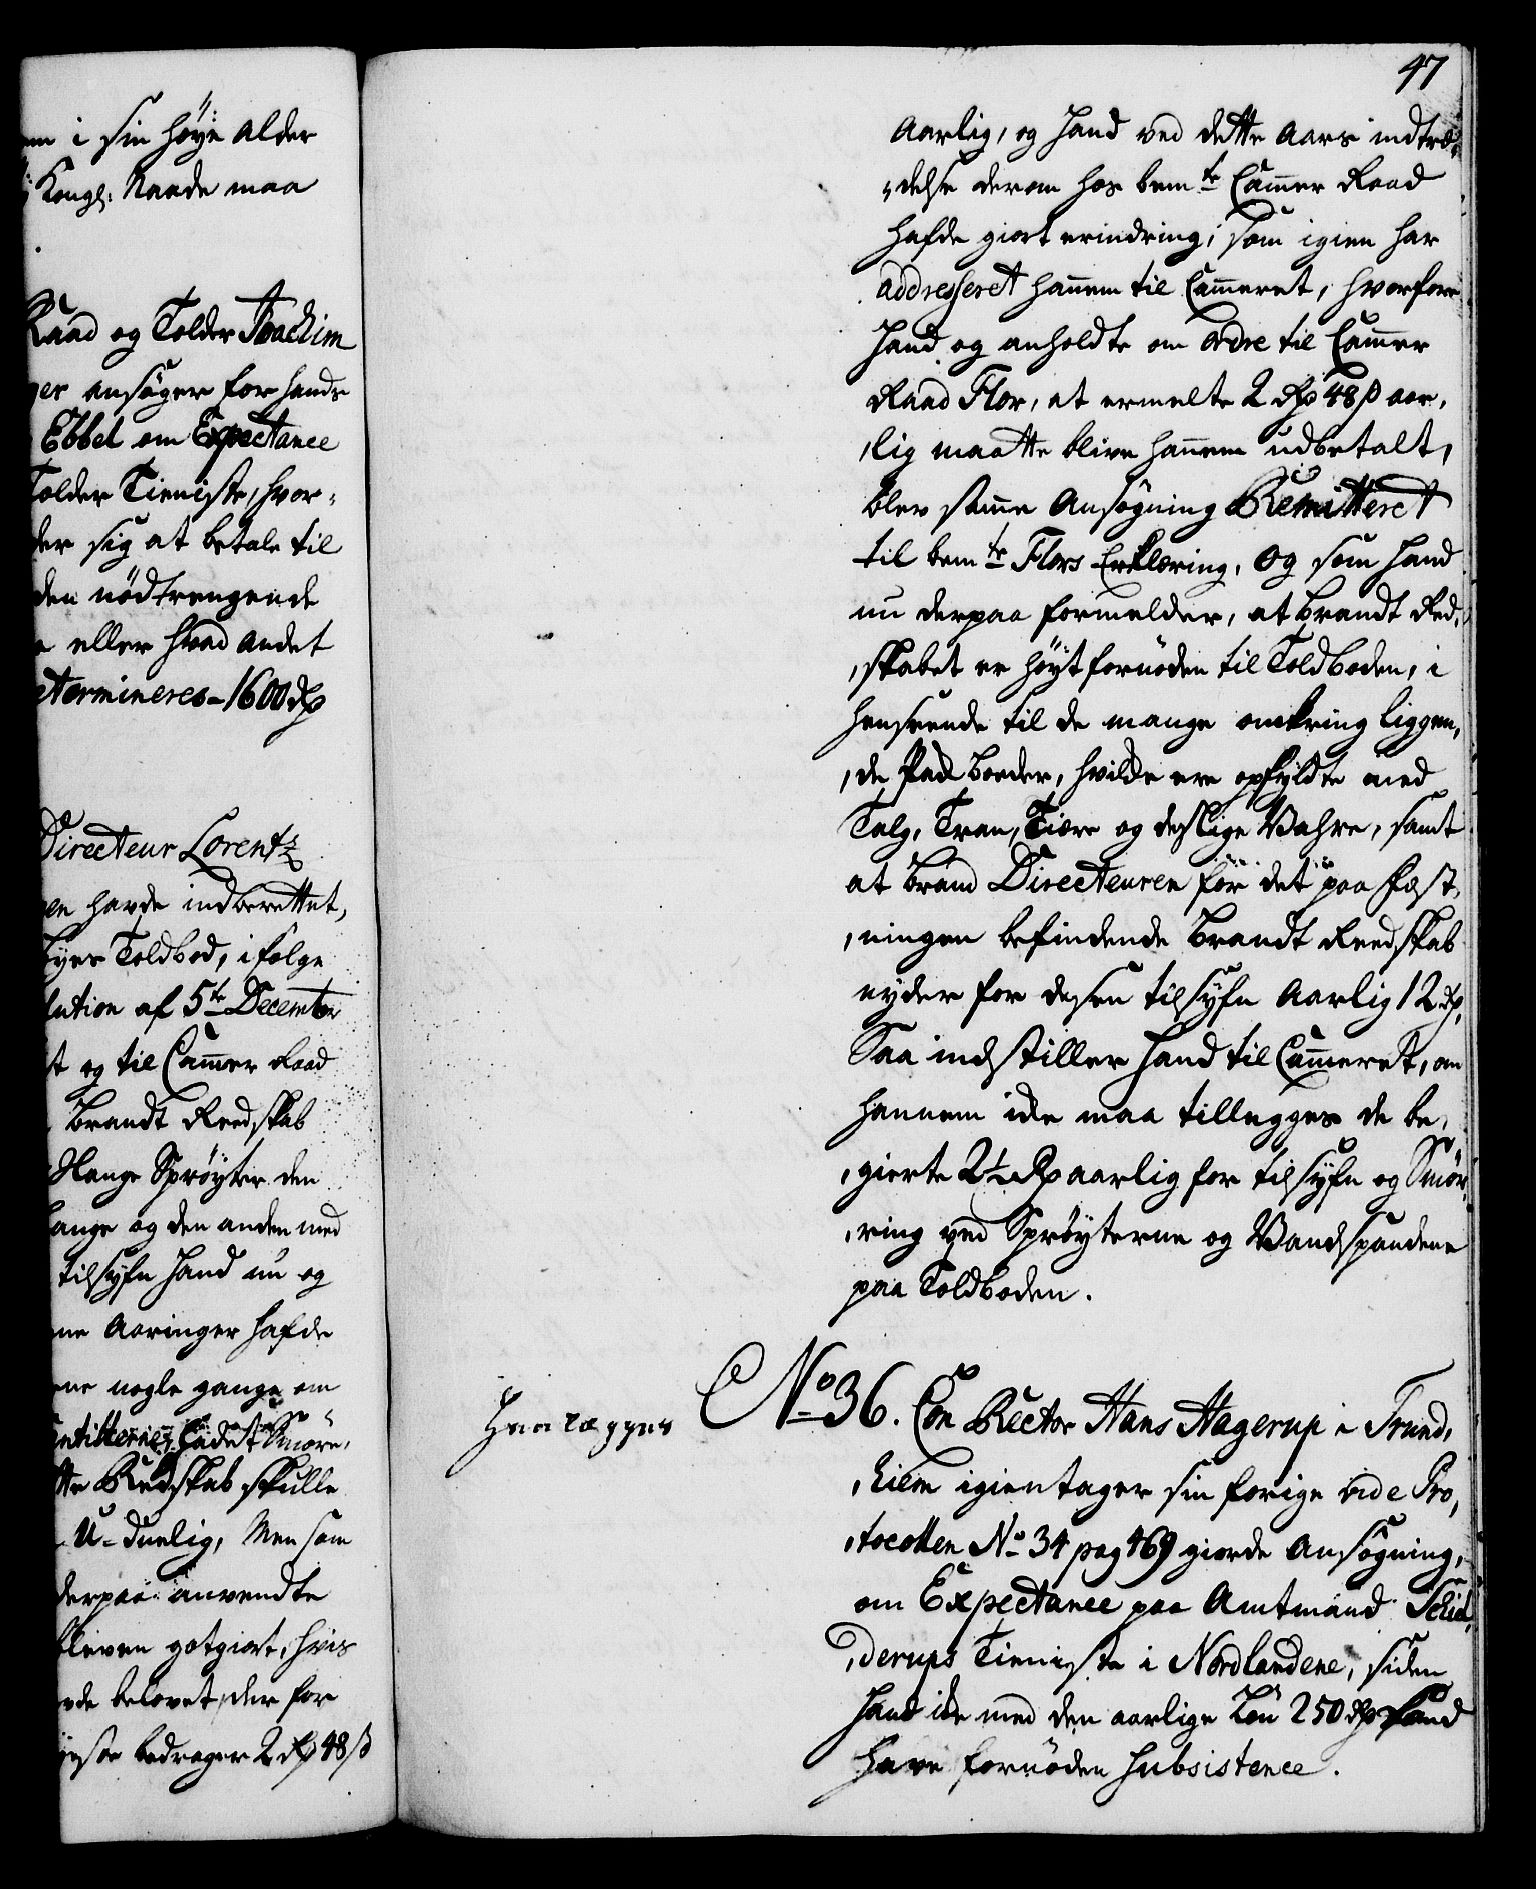 em i sin høye Alder
Kongl: Naade maa
Raad og Tolder Joachim
ger ansøger for hands
Ebbel om Expectance
Tolder Tieniste, hvor-
der sig at betale til
den nødtrængende
eller hvad andet
etermineres - 1600 rdr
Directeur Lorentz
en havde indberettet,
byes Toldbod, i følge
lution af 5te Decembr
st og til Cammer Raad
Brandt Reedskab
Slange Sprøyter den
ange og den anden med
tilsyfn hand nu og
ne Aaringer hafde
ne nogle gange om
Smøre,
tte Redskab skulle
U-duelig, Men som
derpaa anvendte
bleven gotgiort, hvis
vde belovet, der for
bedrager 2 rdr 48 s
47
Aarlig, og hand ved dette Aars indtræ,
,delse derom hos bemte Cammer Raad
hafde giort erindring, som igien har
addresseret hannem til Cammeret, hvorfore
hand og anholdte om Ordre til Cammer
Raad Flor, at ermelte 2 rdr 48 s aar,
,lig maatte blive hannem udbetalt,
blev samme Ansøgning Remitteret
til bemte Flors Erklæring, Og som hand
nu derpaa formelder, at Brandt Red,
,skabet er høyt fornøden til Toldboden, i
henseende til de mange omkring liggen,
,de Pak Boeder, hvilke ere opfyldte med
Talg, Tran, Tiære og deslige Vahre, samt
at Brand Directeuren for det paa Fæst,
,ningen befindende Brandt Reedskab
nyder for desen tilsyfn Aarlig 12 rdr,
Saa indstiller hand til Cammeret, om
hannem icke maa tillegges de be,
,gierte 2½ Rdr aarlig for tilsyfn og Smør,
,ring ved Sprøyterne og Vandspandene
paa Toldboden.
Henlægges
No 36. Con Rector Hans Hagerup i Trund,
,hiem igientager sin forige vide Pro,
,tocollen No 34 pag 469 giorde Ansøgning,
om Expectance paa Amtmand Schiel,
,derups Tieniste i Nordlandene, siden
hand icke med den aarlige Løn 250 rdr kand
have fornøden Subsistence.